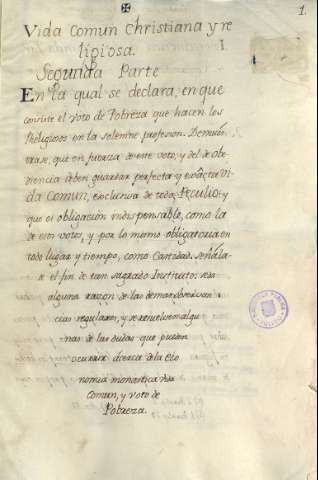 1.
Vida Comun Christiana y re
ligiosa. I.
Segunda Parte
En la qual se declara, en que
consiste el voto de Pobreza que hacen los
Religiosos en la solemne profesion. Demues
trase, que en fuerza de este voto, y del de obe
diencia deben guardar perfecta y exacta vi
da Comun, exclusiva de todo Peculio: y
que es obligación indispensable, como la
de estos votos, y por lo mismo obligatoria en
todo lugar y tiempo, como Castidad. Señala
se el fin de tan sagrado Instituto: se da
alguna razon de las
regulares, y se resuelven algu
nas de las dudas que pueden
ocurrir acerca de la Eco
nomia monastica vida
comun, y voto de
Pobreza.